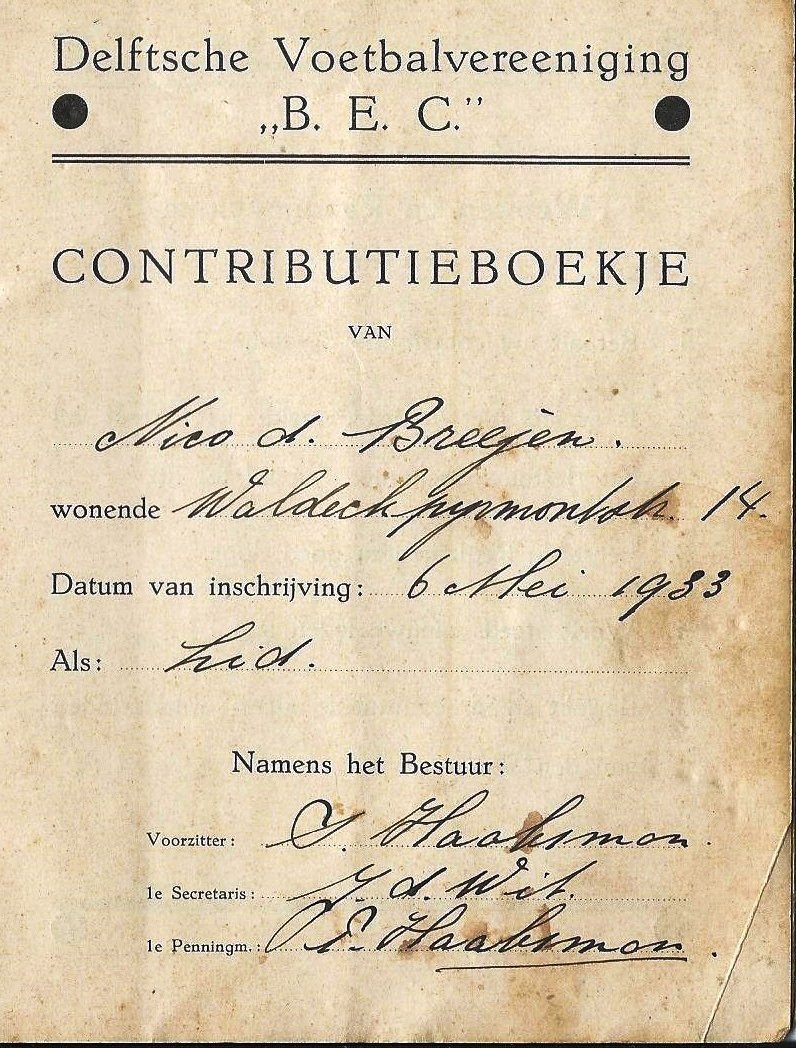 Delftsche Voetbalvereeniging
„B. E. C.”
CONTRIBUTIEBOEKJE
VAN
Nico d. Breejen.
wonende Waldeckpyrmontstr. 14.
Datum van inschrijving: 6 Mei 1933
Als: Lid.
Namens het Bestuur:
Voorzitter:
1e Secretaris: J. d. Wit.
1e Penningm.: